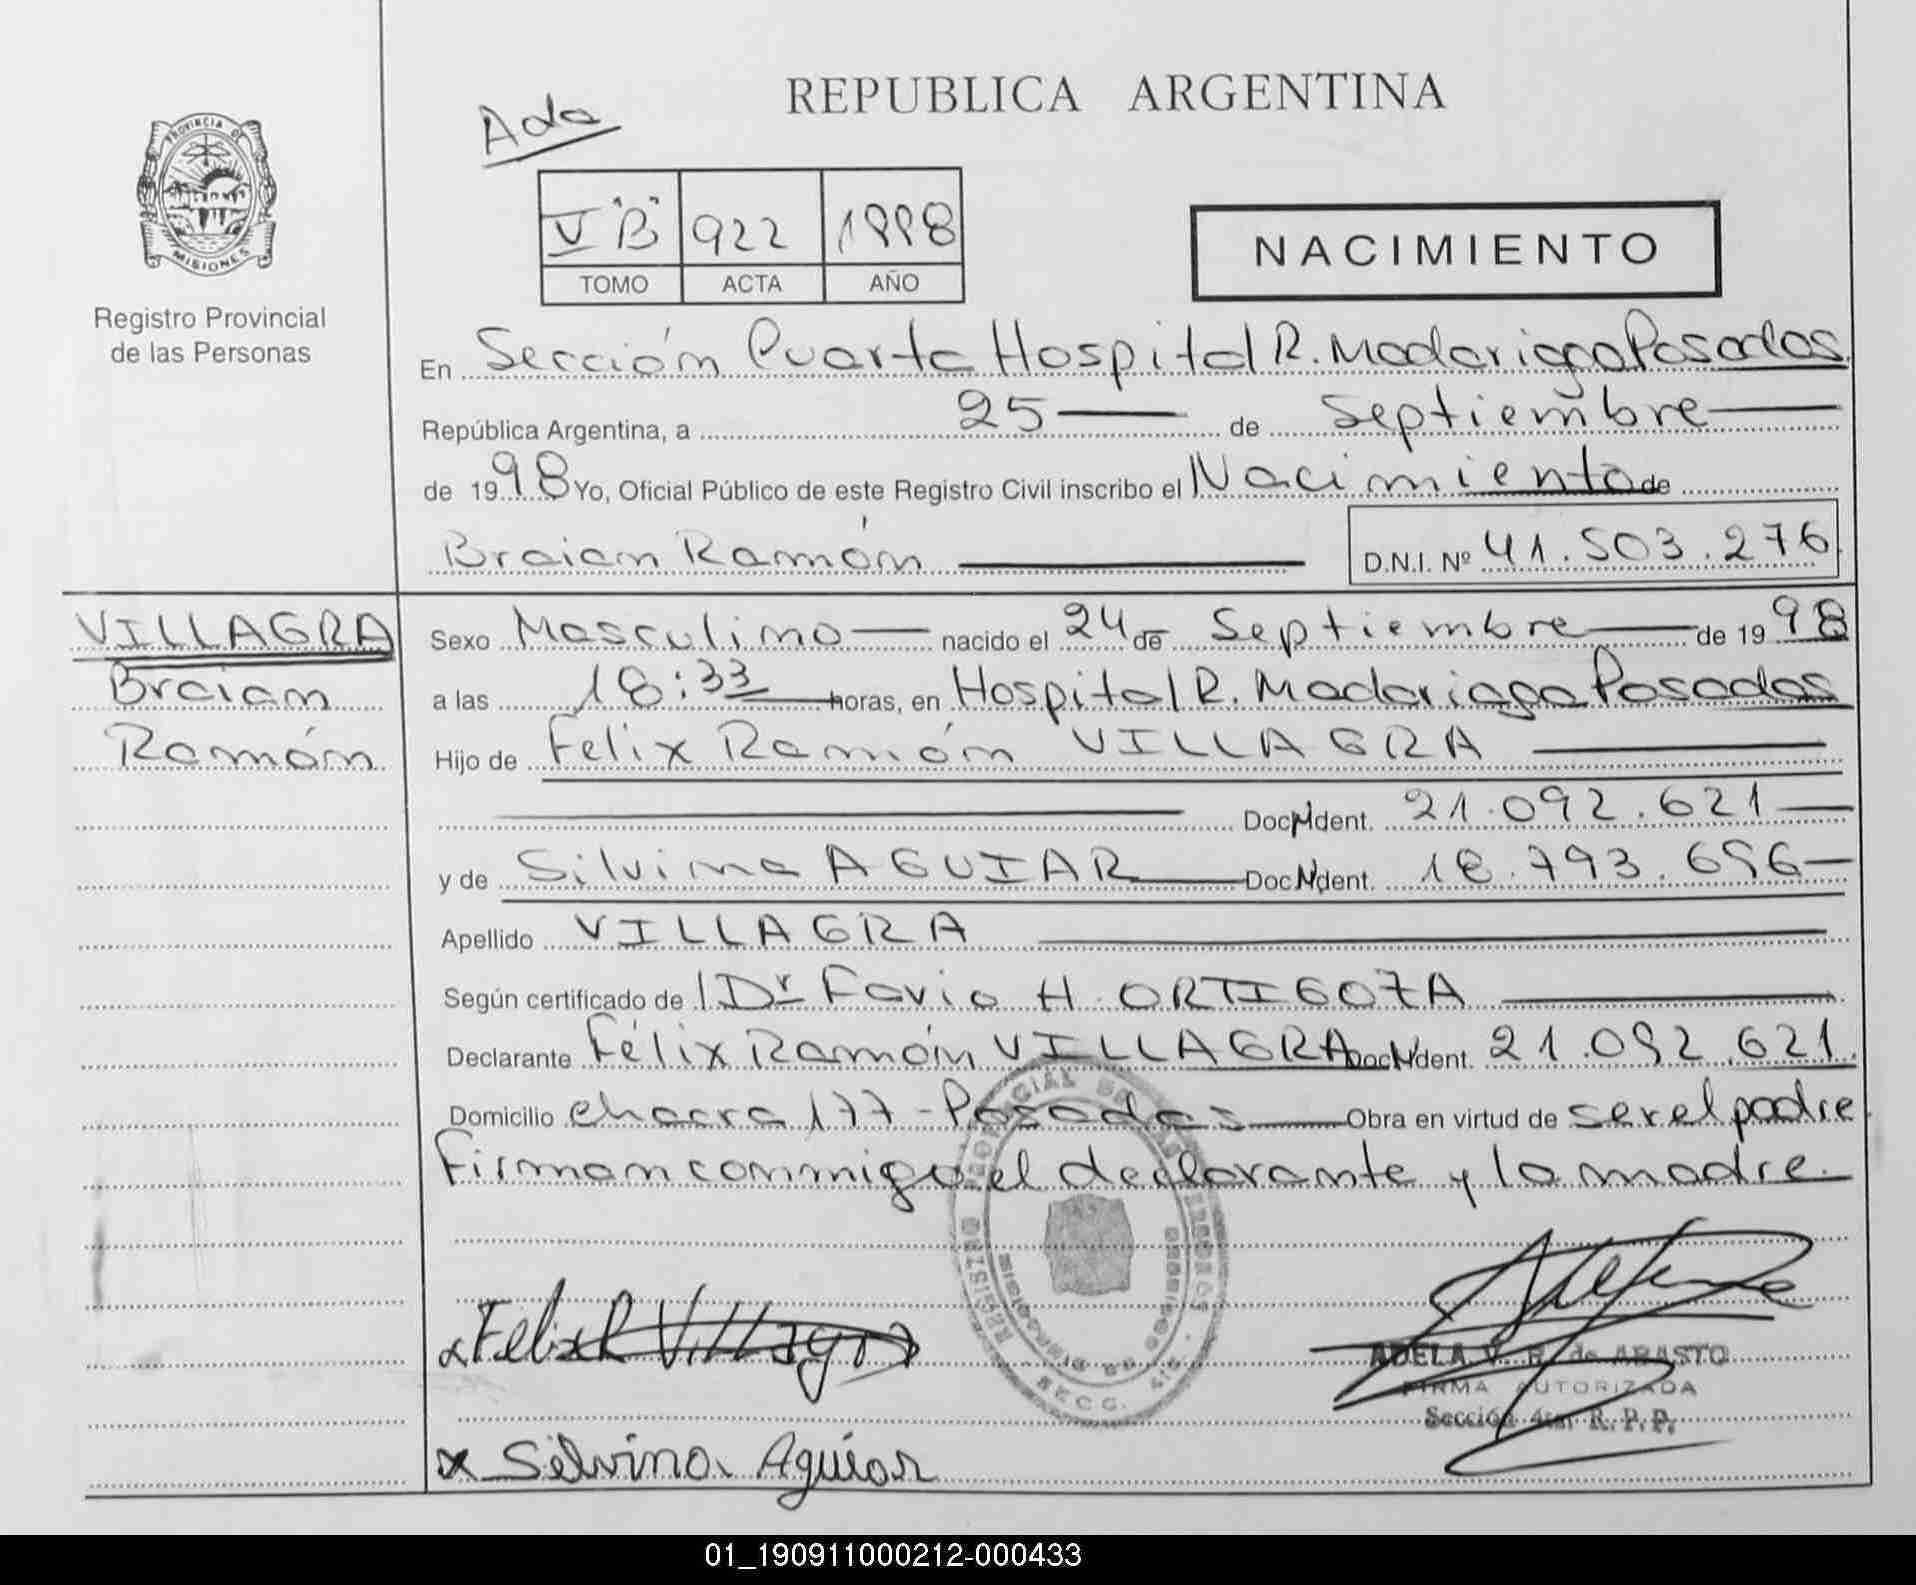 REPUBLICA ARGENTINA
Ada
PROVINCIA DE
MISIONES
Registro Provincial
de las Personas
V "B" 922 1998
TOMO ACTA AÑO
NACIMIENTO
En Sección Cuarta Hospital R. Madariaga Posadas
República Argentina, a 25 de Septiembre
de 1998 Yo, Oficial Público de este Registro Civil inscribo el Nacimiento de
Braian Ramón D.N.I. Nº 41.503.276
VILLAGRA
Braian
Ramón
Sexo Masculino nacido el 24 de Septiembre de 1998
a las 18:33 horas, en Hospital R. Madariaga Posadas
Hijo de Felix Ramón VILLAGRA
Doc. Ident. 21.092.621
y de Silvina AGUIAR Doc. Ident. 18.793.696
Apellido VILLAGRA
Según certificado de Dr Favio H. ORTIGOZA
Declarante Félix Ramón VILLAGRA Doc. Ident. 21.092.621
Domicilio chacra 177 - Posadas Obra en virtud de ser el padre
Firman conmigo el declarante y la madre
x Felix R Villagra
ADELA V. R. de ABASTO
FIRMA AUTORIZADA
Sección 4ta. R.P.P.
x Silvina Aguiar
01_190911000212-000433